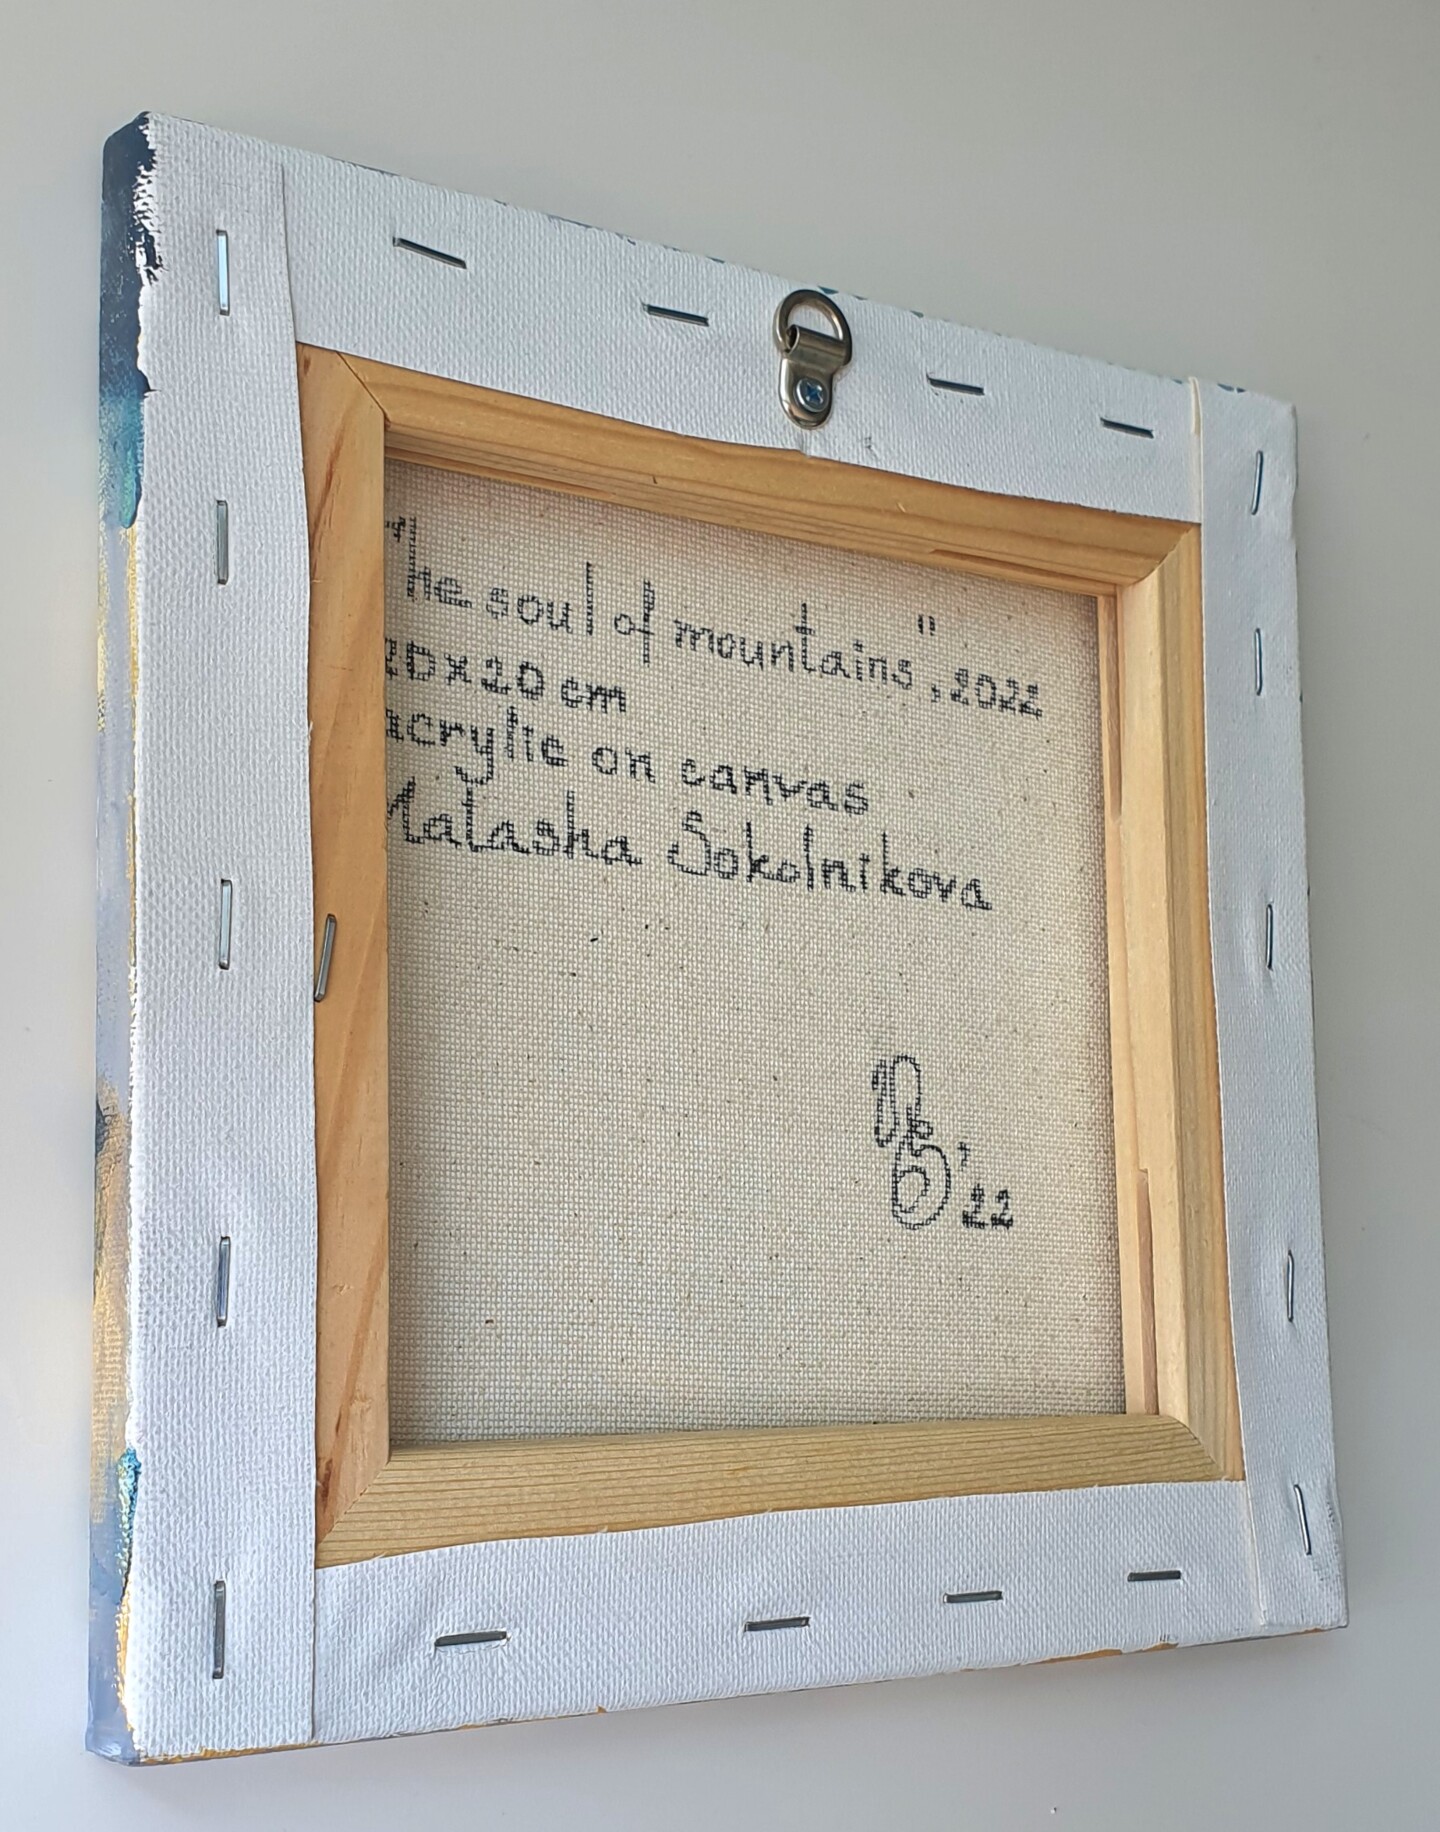 "The soul of mountains", 2022
20x20 cm
acrylic on canvas
Natasha Sokolnikova
'22